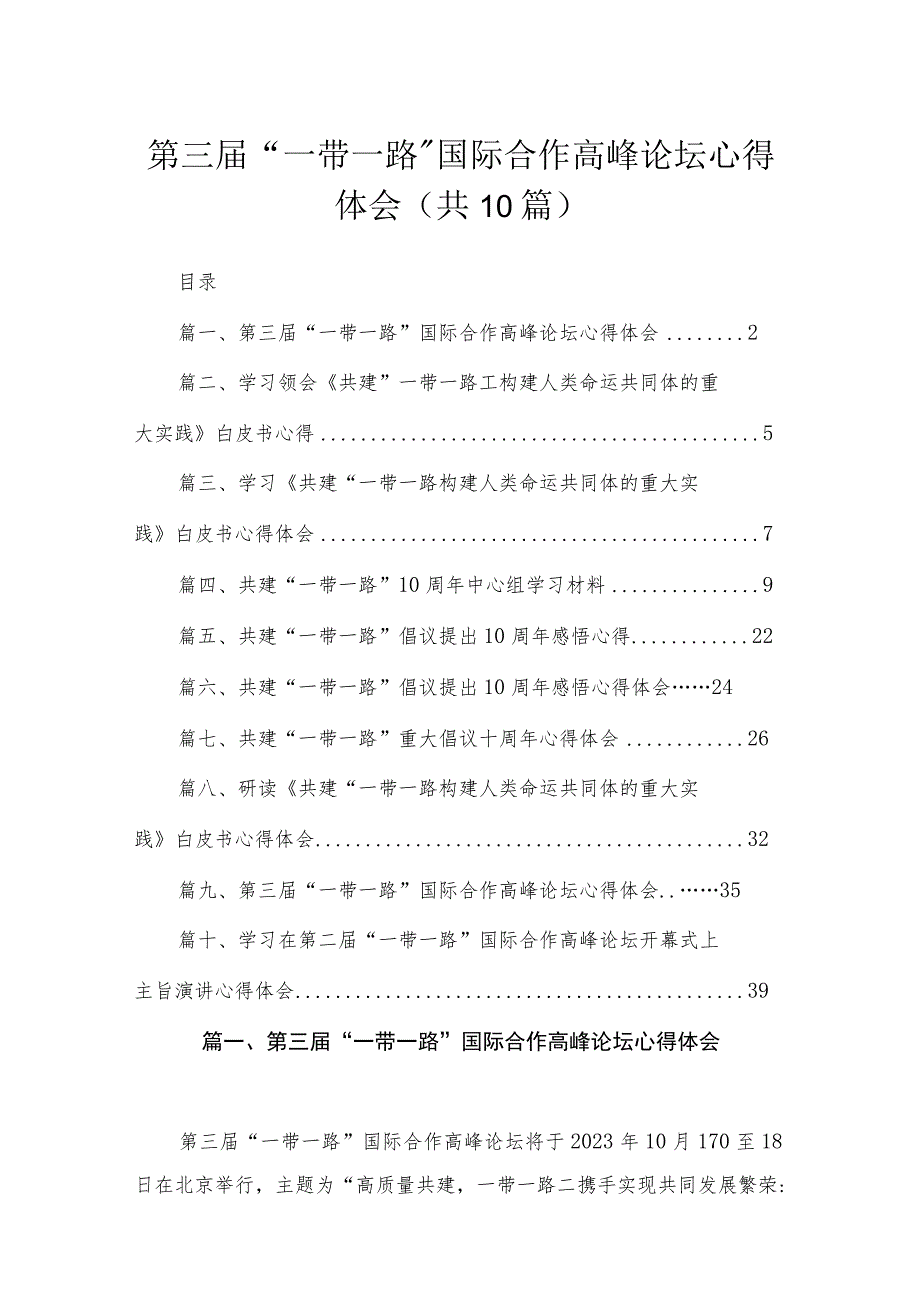 第三届“一带一路"国际合作高峰论坛心得
体会（共10篇）
目录
篇一、第三届“一带一路”国际合作高峰论坛心得体会 ........2
篇二、学习领会《共建”一带一路工构建人类命运共同体的重
大实践》白皮书心得 ............................................5
篇三、学习《共建“一带一路构建人类命运共同体的重大实
践》白皮书心得体会 ............................................7
篇四、共建“一带一路”10周年中心组学习材料 ...............9
篇五、共建“一带一路”倡议提出10周年感悟心得............22
篇六、共建“一带一路”倡议提出10周年感悟心得体会……24
篇七、共建“一带一路”重大倡议十周年心得体会 ............26
篇八、研读《共建“一带一路构建人类命运共同体的重大实
践》白皮书心得体会...........................................32
篇九、第三届“一带一路”国际合作高峰论坛心得体会..……35
篇十、学习在第二届“一带一路”国际合作高峰论坛开幕式上
主旨演讲心得体会.............................................39
篇一、第三届“一带一路”国际合作高峰论坛心得体会
第三届“一带一路”国际合作高峰论坛将于2023年10月170至18
日在北京举行，主题为“高质量共建，一带一路二携手实现共同发展繁荣: